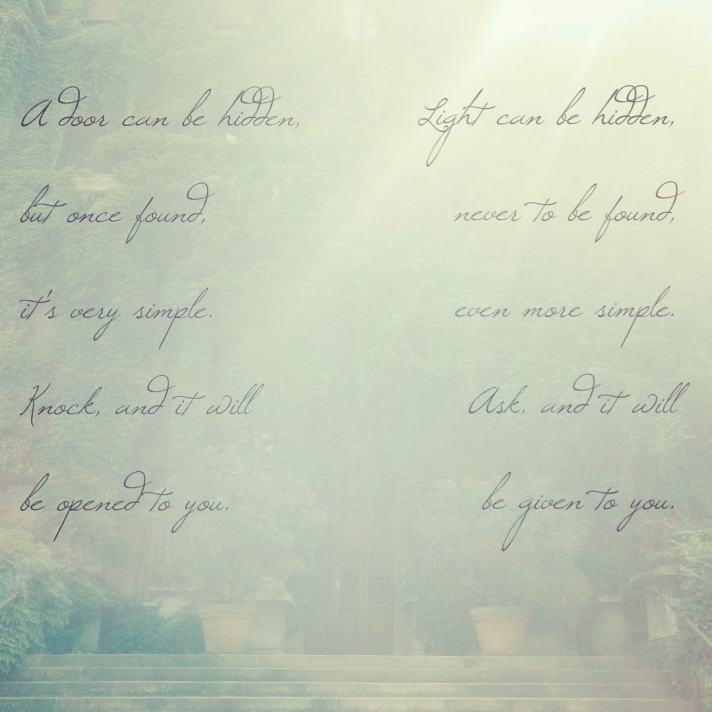 A door can be hidden,
but once found,
it's very simple.
Knock, and it will
be opened to you.
Light can be hidden,
never to be found,
even more simple.
Ask, and it will
be given to you.